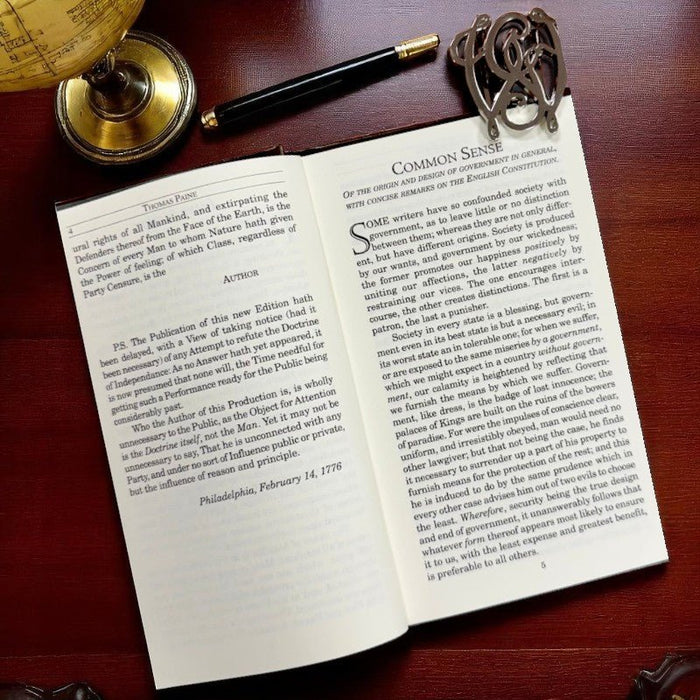 4
THOMAS PAINE
ural rights of all Mankind, and extirpating the
Defenders thereof from the Face of the Earth, is the
Concern of every Man to whom Nature hath given
the Power of feeling; of which Class, regardless of
Party Censure, is the
AUTHOR
P.S. The Publication of this new Edition hath
been delayed, with a View of taking notice (had it
been necessary) of any Attempt to refute the Doctrine
of Independance: As no Answer hath yet appeared, it
is now presumed that none will, the Time needful for
getting such a Performance ready for the Public being
considerably past.
Who the Author of this Production is, is wholly
unnecessary to the Public, as the Object for Attention
is the Doctrine itself, not the Man. Yet it may not be
unnecessary to say, That he is unconnected with any
Party, and under no sort of Influence public or private,
but the influence of reason and principle.
Philadelphia, February 14, 1776
COMMON SENSE
OF THE ORIGIN AND DESIGN OF GOVERNMENT IN GENERAL,
WITH CONCISE REMARKS ON THE ENGLISH CONSTITUTION.
SOME writers have so confounded society with
government, as to leave little or no distinction
between them; whereas they are not only differ-
ent, but have different origins. Society is produced
by our wants, and government by our wickedness;
the former promotes our happiness positively by
uniting our affections, the latter negatively by
restraining our vices. The one encourages inter-
course, the other creates distinctions. The first is a
patron, the last a punisher.
Society in every state is a blessing, but govern-
ment even in its best state is but a necessary evil; in
its worst state an intolerable one; for when we suffer,
or are exposed to the same miseries by a government,
which we might expect in a country without govern-
ment, our calamity is heightened by reflecting that
we furnish the means by which we suffer. Govern-
ment, like dress, is the badge of lost innocence; the
palaces of Kings are built on the ruins of the bowers
of paradise. For were the impulses of conscience clear,
uniform, and irresistibly obeyed, man would need no
other lawgiver; but that not being the case, he finds
it necessary to surrender up a part of his property to
furnish means for the protection of the rest; and this
he is induced to do by the same prudence which in
every other case advises him out of two evils to choose
the least. Wherefore, security being the true design
and end of government, it unanswerably follows that
whatever form thereof appears most likely to ensure
it to us, with the least expense and greatest benefit,
is preferable to all others.
5